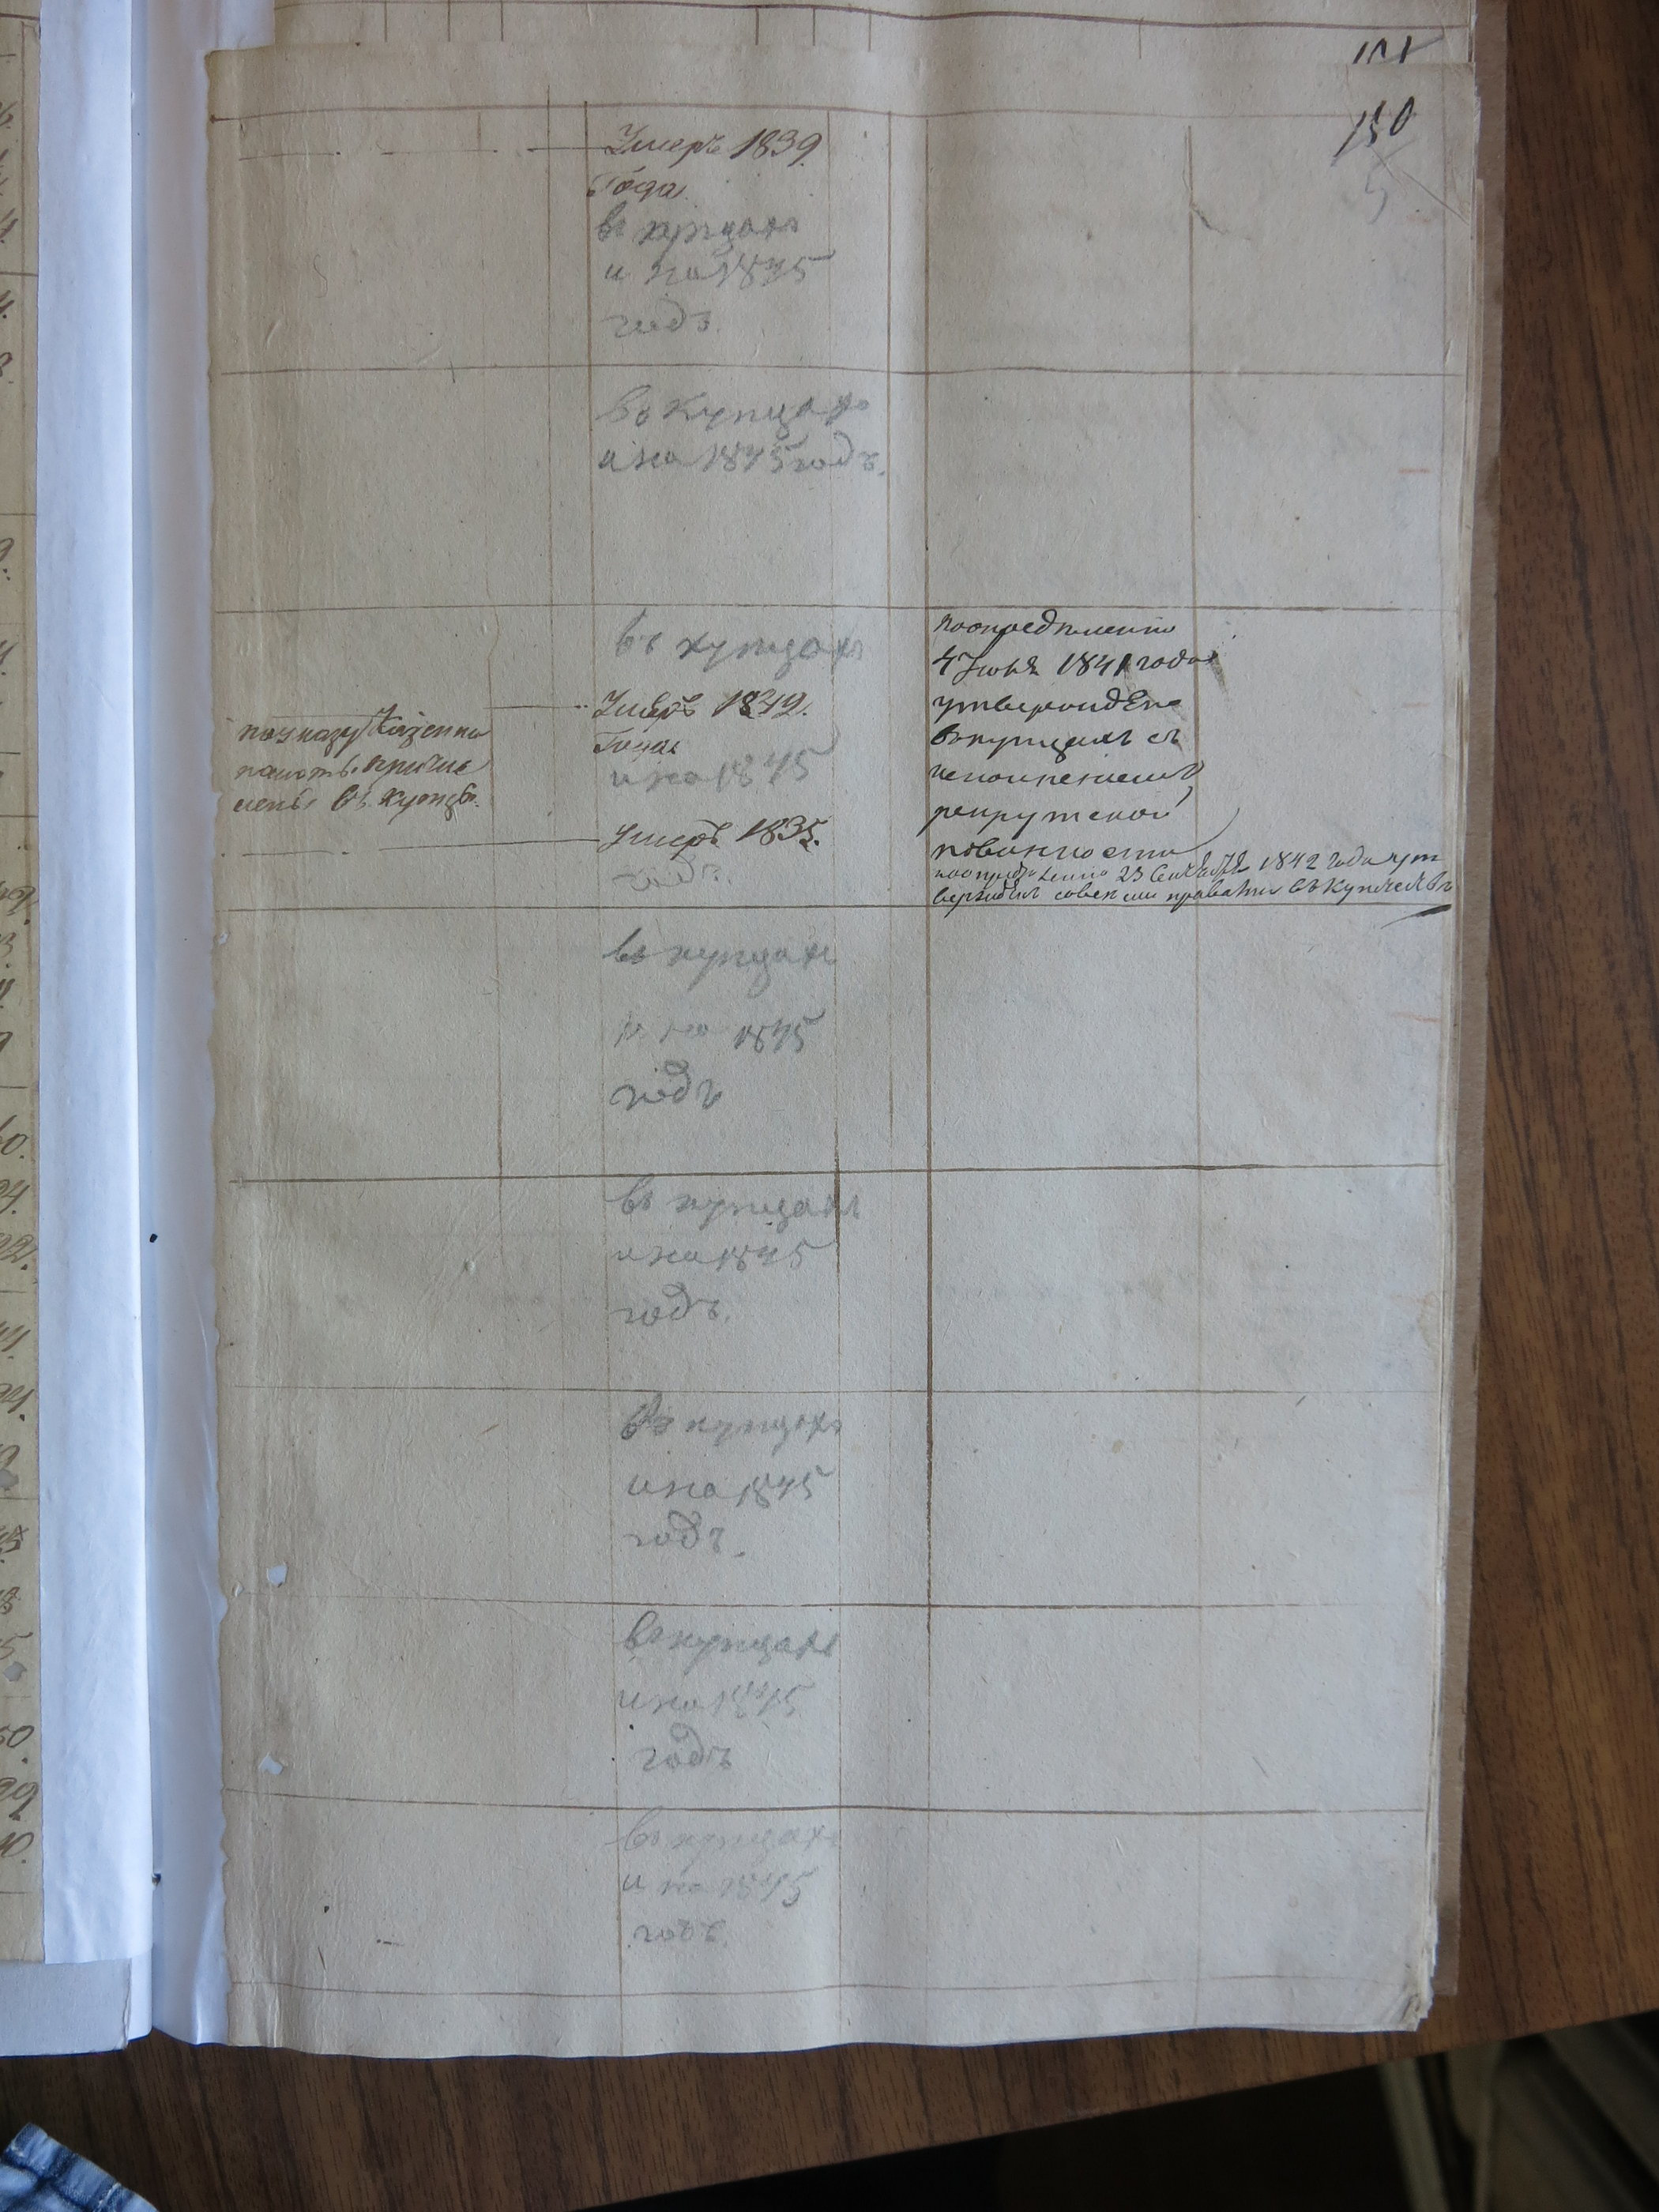 150
Умеръ 1839
Года.
въ купцахъ
и на 1845
годъ.
въ купцахъ
и на 1845 годъ.
въ купцахъ
Умеръ 1842.
Года
и на 1845
Умеръ 1835.
годъ.
по указу Казенной
палаты причис
ленъ въ купцы.
по опредѣленію
4 Июня 1841 года
утвержденъ
въ купцахъ съ
рекрутской
повинности
по опредѣленію 23 Сентября 1842 года ут
вержденъ совсеми правами въ купечествѣ
въ купцахъ
и на 1845
годъ
въ купцахъ
и на 1845
годъ.
въ купцахъ
и на 1845
годъ.
въ купцахъ
и на 1845
годъ
въ купцахъ
и на 1845
годъ.